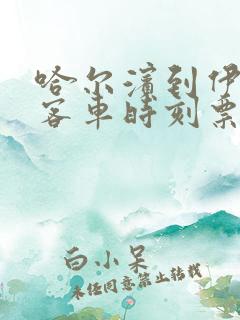 哈尔滨到伊
客车时刻票
白小呆
未经同意禁止转载